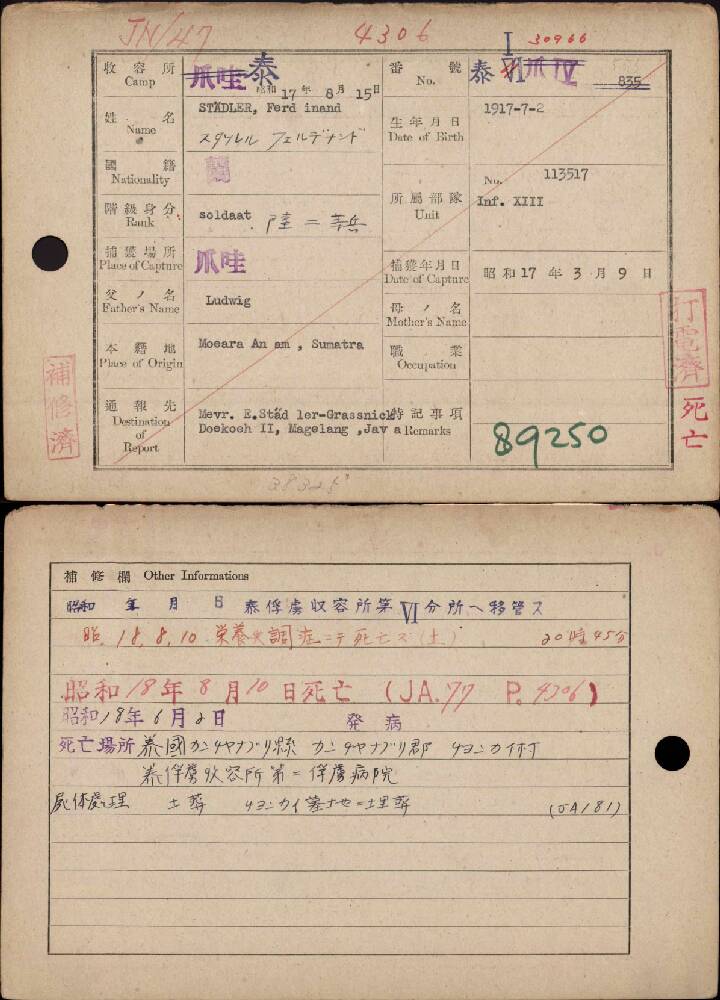 JN/47 4306 I 30966
收容所 Camp 爪哇 泰 昭和17年8月15日
番號 No. 泰 VI 爪 IV 835
姓名 Name STÄDLER, Ferd inand
スタツレル フェルデナンド
生年月日 Date of Birth 1917-7-2
國籍 Nationality 蘭
階級身分 Rank soldaat 陸二等兵
所屬部隊 Unit No. 113517
Inf. XIII
捕獲場所 Place of Capture 爪哇
捕獲年月日 Date of Capture 昭和17年3月9日
父ノ名 Father's Name Ludwig
母ノ名 Mother's Name
本籍地 Place of Origin Moeara An am , Sumatra
職業 Occupation
通報先 Destination of Report Mevr. E.Städ ler-Grassnick
Doekoeh II, Magelang ,Jav a
特記事項 Remarks 89250
補修濟
打電濟
死亡
補修欄 Other Informations
昭和 年 月 日 泰俘虜収容所第VI分所ヘ移管ス
昭.18.8.10.栄養失調症ニテ死亡ス(土) 20時45分
昭和18年8月10日死亡 (JA.77 P.4306)
昭和18年6月2日 発病
死亡場所 泰國カンチヤナブリ縣 カンチヤナブリ郡 チヨンカイ村
泰俘虜收容所第二俘虜病院
屍体処理 土葬 チヨンカイ墓地ニ埋葬 (JA181)